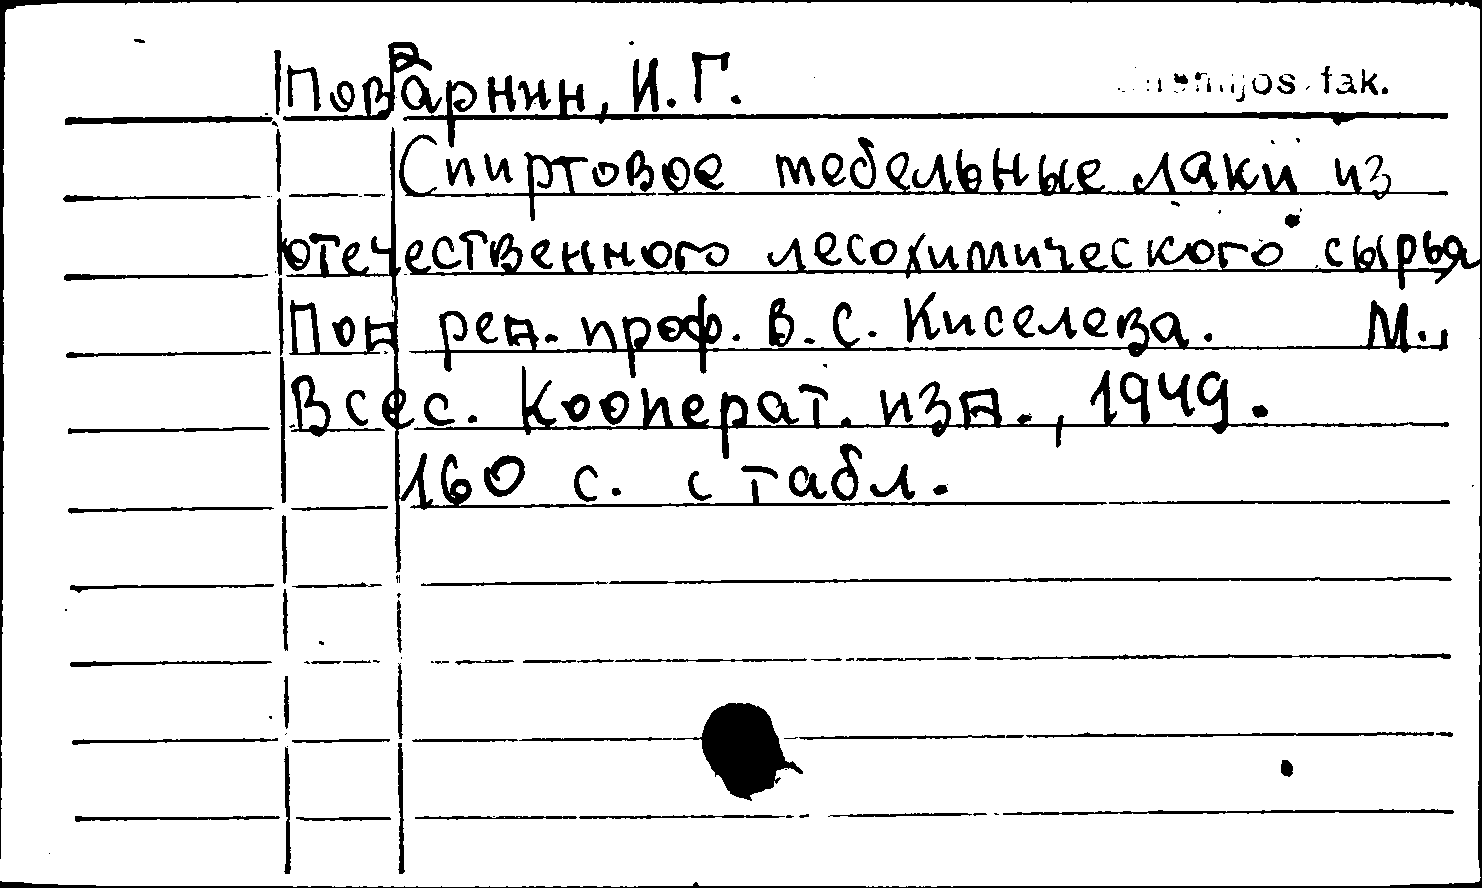 Поварнин, И. Г.
Chemijos fak.
Спиртовое мебельные лаки из
отечественного лесохимического сырья
Под ред. проф. В. С. Киселева. М.,
Всес. Кооперат. изд., 1949.
160 с. с табл.